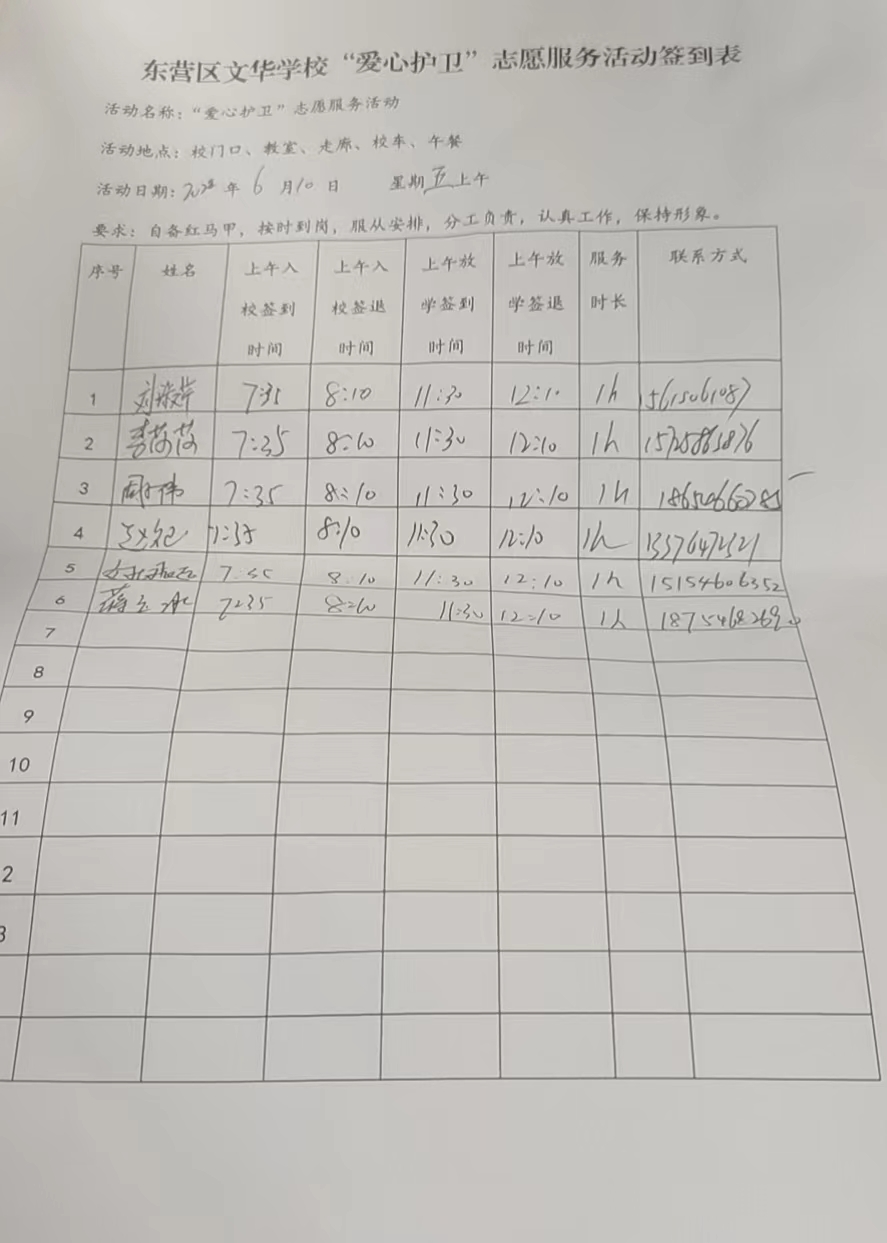 东营区文华学校“爱心护卫”志愿服务活动签到表
活动名称：“爱心护卫”志愿服务活动
活动地点：校门口、教室、走廊、校车、午餐
活动日期： 年 6 月 10 日 星期 五 上午
要求：自备红马甲，按时到岗，服从安排，分工负责，认真工作，保持形象。
序号 姓名 上午入校签到时间 上午入校签退时间 上午放学签到时间 上午放学签退时间 服务时长 联系方式
1 7:35 8:10 11:30 12:10 1h 15615061087
2 李莎莎 7:35 8:10 11:30 12:10 1h
3 7:35 8:10 11:30 12:10 1h
4 7:35 8:10 11:30 12:10 1h
5 7:35 8:10 11:30 12:10 1h 15154606352
6 7:35 8:10 11:30 12:10 1h
7
8
9
10
11
2
3